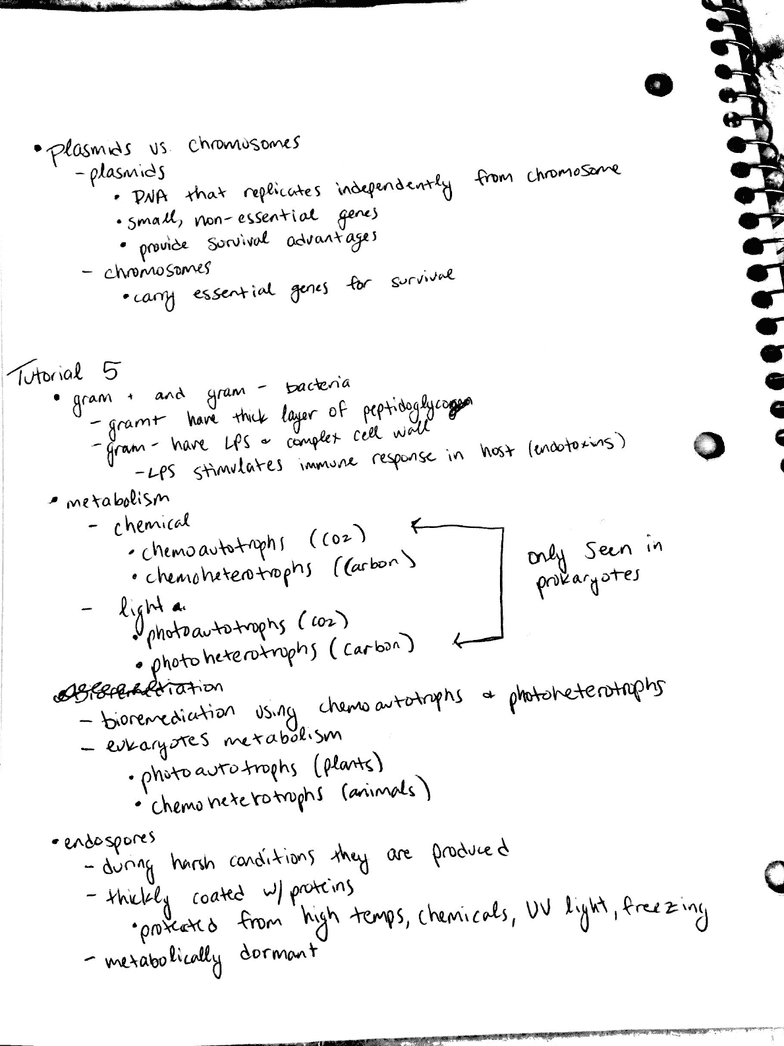 • Plasmids vs. Chromosomes
- plasmids
• DNA that replicates independently from chromosome
• small, non-essential genes
• provide survival advantages
- chromosomes
• carry essential genes for survival
Tutorial 5
• gram + and gram - bacteria
- gram+ have thick layer of peptidoglycan
- gram - have LPS & complex cell wall
- LPS stimulates immune response in host (endotoxins)
• metabolism
- chemical
• chemoautotrophs (CO2)
• chemoheterotrophs (Carbon)
only seen in
prokaryotes
- light
• photoautotrophs (CO2)
• photoheterotrophs (carbon)
- bioremediation using chemoautotrophs & photoheterotrophs
- eukaryotes metabolism
• photoautotrophs (plants)
• chemoheterotrophs (animals)
• endospores
- during harsh conditions they are produced
- thickly coated w/ proteins
• protected from high temps, chemicals, UV light, freezing
- metabolically dormant